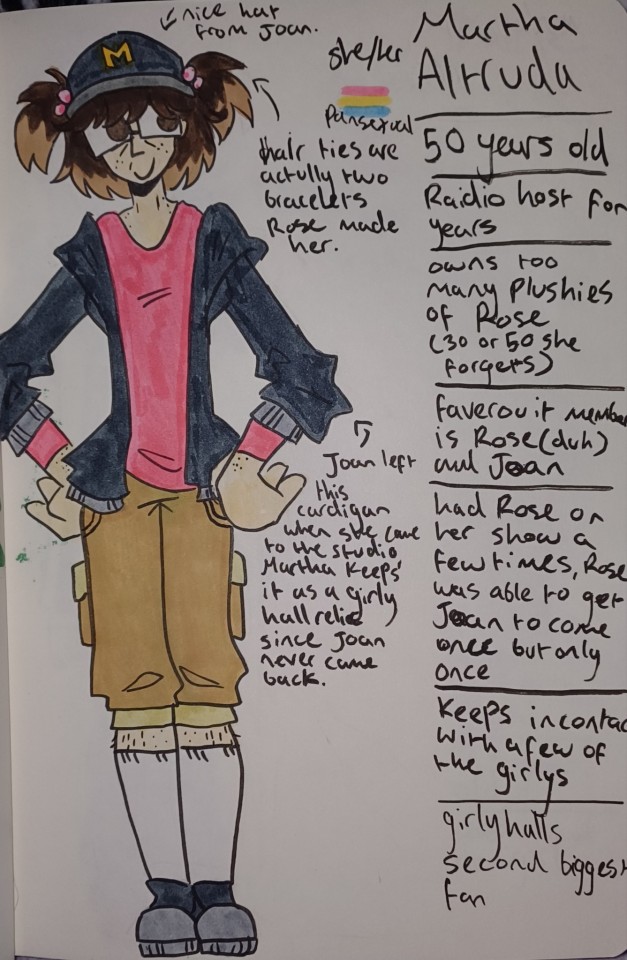 nice hat
from Joan.
she/her
Pansexual
Martha
Altruda
hair ties are
actully two
bracelets
Rose made
her.
50 years old
Raidio host for
years
owns too
many Plushies
of Rose
(30 or 50 she
forgets)
faverouit member
is Rose (duh)
and Joan
had Rose on
her show a
few times, Rose
was able to get
Joan to come
once but only
once
Keeps in contac
with a few of
the girlys
girly halls
second biggest
fan
M
Joan left
this
cardigan
when she came
to the studio
Martha Keeps
it as a girly
hall relic
since Joan
never came
back.